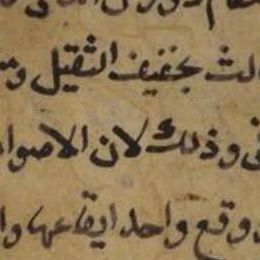 لث بخفيف الثقيل و
فى وذلك لان الاصوا
وقع واحد ايقاعها وا